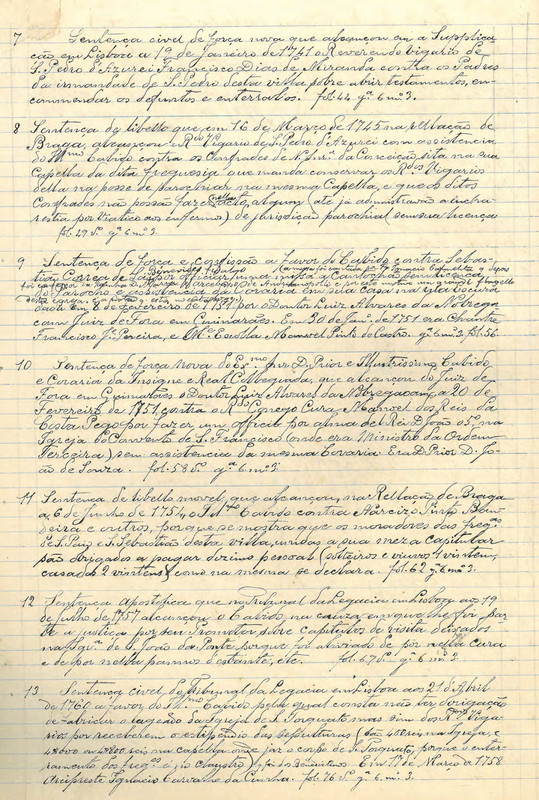 7 Sentença civel de força nova que alcançou em a Supplica
ção em Lisboa a 19 de Janeiro de 1741 o Reverendo Vigario de
S. Pedro d'Azurei Francisco Dias de Miranda contra os Padres
da irmandade de S. Pedro desta villa sobre abrir testamentos, en-
commendar os defuntos e enterralos. fol. 44. g.ª 6 m.º 3.
8 Sentença de libello que em 16 de Março de 1745 na rellação de
Braga, alcançou o R.do Vigario de S. Pedro d'Azurei com assistencia
do Ill.mo Cabido contra os Confrades de N. Snr.ª da Conceição sita na sua
Capella da dita freguesia que manda conservar os R.dos Vigarios
della na posse de parochiar na mesma Capella, e que os ditos
Confrades não possão fazer nella acto algum (até já administravão a Eucha-
restia por Viatico aos infermos) de jurisdição parochial sem sua licença
fol. 49 g.ª 6 m.º 3.
9 Sentença de força e confissão a favor do Cabido contra Sebas-
tião Correa de
desta igreja
dada em 8 de Fevereiro de 1751 por o Doutor Luiz Alvares da Nobrega
cam Juiz de Fora em Guimarães. Em 30 de Jan.º de 1751 era Chantre
Francisco J.º Pereira, e M.e Escolla Manoel Pinto de Castro. g.ª 6 m.º 3. fol. 56.
10 Sentença de força nova do Ex.mo Snr. D. Prior e Illustrissimo Cabido
e Coraria da Insigne e Real Collegiada, que alcançou do Juiz de
Fora em Guimarães o Doutor Luiz Alvares da Nobregacam, a 20 de
Fevereiro de 1751, contra o R.do Conego Cura Manoel dos Reis da
Costa Pego por fazer um officio por alma del Rei D. João o 5.º, na
Igreja do Convento de S. Francisco (onde era Ministro da Ordem
Terceira) sem assistencia da mesma Coraria. Era D. Prior D. Jo-
ão de Souza. fol. 58 g.ª 6 m.º 3.
11 Sentença de libello movel, que alcançou, na Rellação de Braga
a 6 de Junho de 1754, o Ill.mo Cabido contra Narcizo Pinto Ban-
deira e outros, porque se mostra que os moradores das freg.as
de S. Paio e S. Sebastião desta villa, unidas a sua meza capitular
são obrigados a pagar dizimo pessoal (solteiros e viuvos 1 vintem,
casados 2 vintens) como na mesma se declara. fol. 62 g.ª 6 m.º 3.
12 Sentença Apostolica que no Tribunal da Legacia em Lisboa aos 19
de Julho de 1757 alcançou o Cabido, na cauza em que lhe foi par-
te a justiça por seu Promotor, sobre capitulos de visita deixados
na Igr.ª de S. João da Ponte porque foi alliviado de por nella cura
e de por nella pannos d'estante, etc. fol. 67 g.ª 6 m.º 3.
13 Sentença civel do Tribunal da Legacia em Lisboa aos 21 d'Abril
de 1760 a favor do Ill.mo Cabido pela qual consta não ter obrigação
de ladrilar o lageado da Igreja de S. Torquato mas sim os R.dos Viga-
rios por receberem o estipendio das sepulturas (são 400 reis na Igreja, e
4$600 ou 4800 reis na capella onde jaz o corpo de S. Torquato, porque o enter-
ramento dos freg.es é no Claustro) Em 17 de Março de 1758
Arciprestre Ignacio Carvalho da Cunha. fol. 76 g.ª 6 m.º 3.